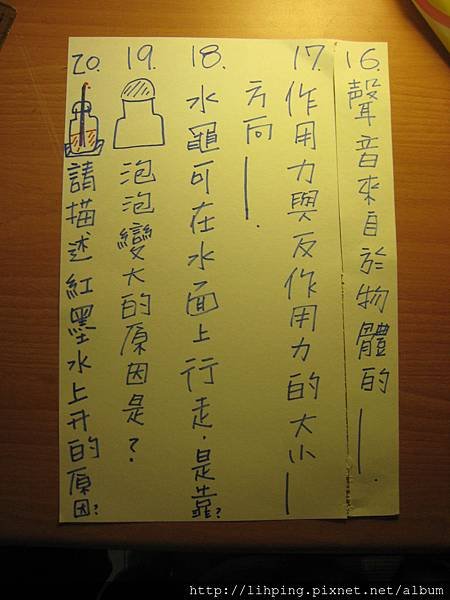 16.聲音來自於物體的—.
17.作用力與反作用力的大小—
方向—.
18.水黽可在水面上行走.是靠?
19.泡泡變大的原因是?
20.請描述紅墨水上升的原因?
http://lihping.pixnet.net/album